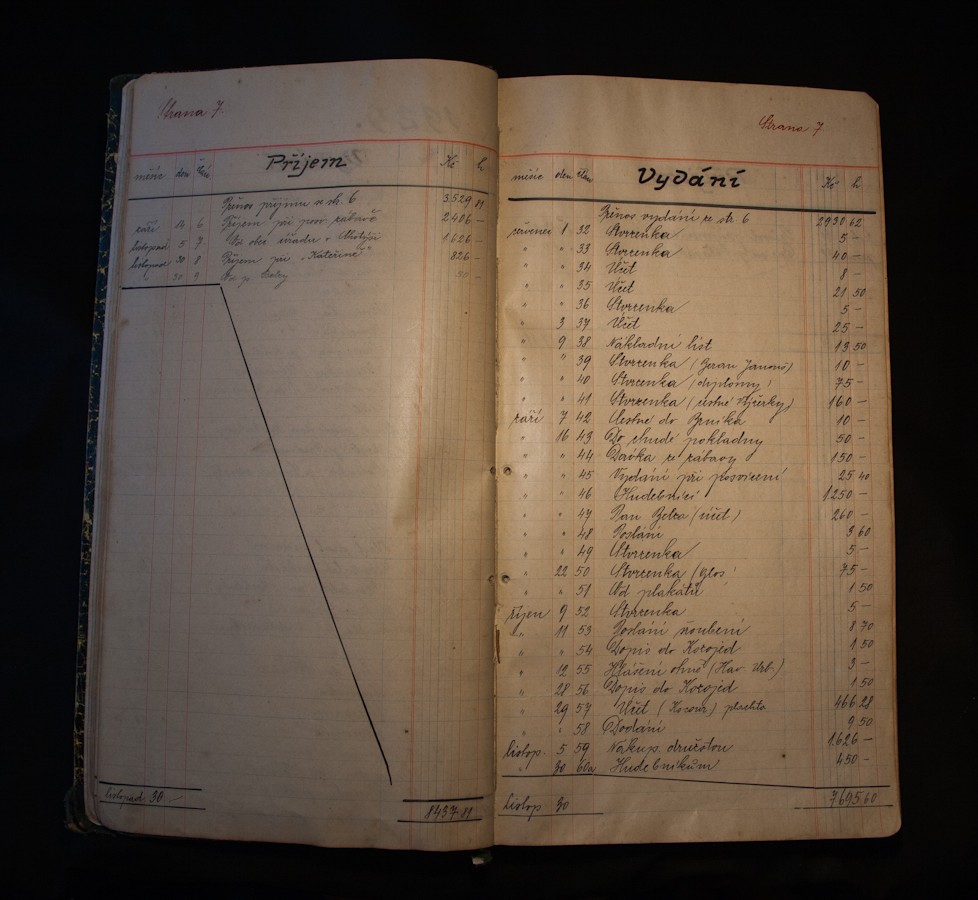 Strana 7
Příjem
měsíc den člán Kč h
Přenos příjmu ze str. 6 3529 81
září 14 6 Příjem při posv. zábavě 2406 —
listopad 5 7 Od obc. úřadu v 1626 —
listopad 30 8 Příjem při „Kateřině" 826 —
" 30 9 Od p. 50 —
listopad 30 8437.81
Strana 7
Vydání
měsíc den člán Kč h
Přenos vydání ze str. 6 2930.62
červenec 1 32 Stvrzenka 5 —
" " 33 Stvrzenka 40 —
" " 34 Účet 8 —
" " 35 Účet 21 50
" " 36 Stvrzenka 5 —
" 3 37 Účet 25 —
" 9 38 Nákladní list 13 50
" " 39 Stvrzenka (Beran Janouš) 10 —
" " 40 Stvrzenka (diplomy) 75 —
" " 41 Stvrzenka (čestné) 160 —
září 7 42 Cestné do Brníka 10 —
" 16 43 Do chudé pokladny 50 —
" " 44 Dávka ze zábavy 150 —
" " 45 Vydání při posvícení 25 40
" " 46 Hudebníci 1250 —
" " 47 Pan (účet) 260 —
" " 48 Poslání 3 60
" " 49 Stvrzenka 5 —
" 22 50 Stvrzenka 75 —
" " 51 Od plakátů 1 50
říjen 9 52 Stvrzenka 5 —
" 11 53 Poslání šroubení 8 70
" " 54 Dopis do Kozojed 1 50
" 12 55 Hlášení ohně (Hav. Vrb.) 3 —
" 28 56 Dopis do Kozojed 1.50
" 29 57 Účet (Kocour) plachta 466.28
" " 58 Dodání 9.50
listop. 5 59 Nákup. družstvu 1.626 —
" 30 60a Hudebníkům 450 —
Listop 30 7695.60